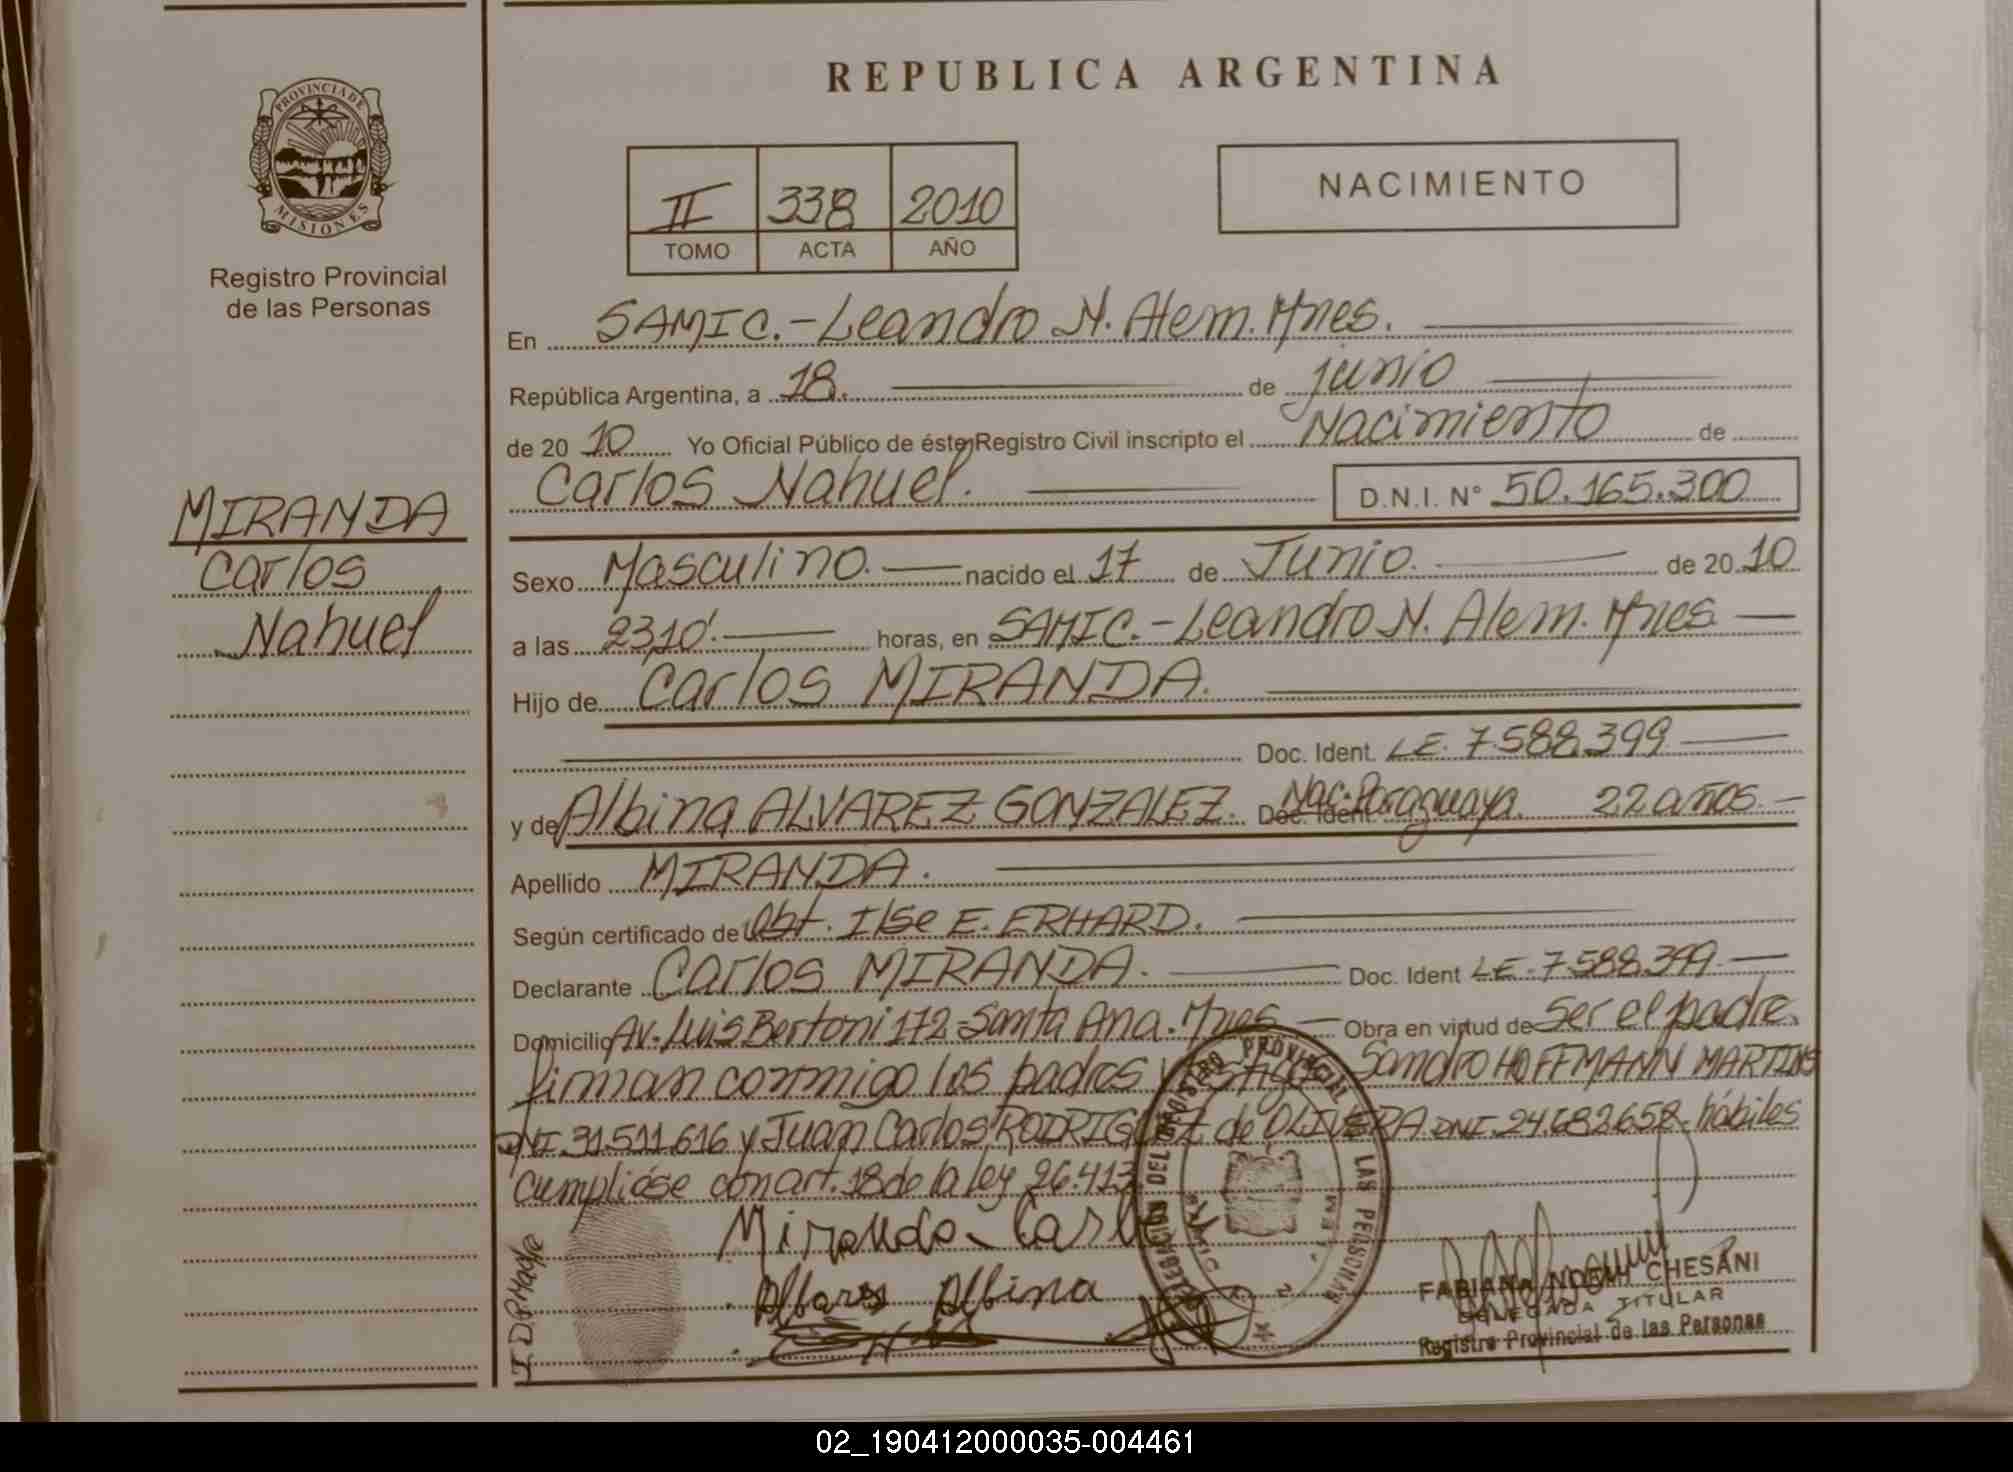 REPUBLICA ARGENTINA
PROVINCIA DE
MISIONES
Registro Provincial
de las Personas
MIRANDA
Carlos
Nahuel
II 338 2010
TOMO ACTA AÑO
NACIMIENTO
En SAMIC.-Leandro N. Alem. Mnes.
República Argentina, a 18. de junio
de 20 10 Yo Oficial Público de éste Registro Civil inscripto el Nacimiento de
Carlos Nahuel. D.N.I. N° 50.165.300
Sexo Masculino. nacido el 17 de Junio. de 20 10
a las 23,10'. horas, en SAMIC.-Leandro N. Alem. Mnes.
Hijo de Carlos MIRANDA.
Doc. Ident. LE. 7.588.399
y de Albina ALVAREZ GONZALEZ. Doc. Ident Nac. Paraguaya. 22 años.
Apellido MIRANDA.
Según certificado de Obt. Ilse E. ERHARD.
Declarante Carlos MIRANDA. Doc. Ident LE. 7.588.399
Domicilio AV. Luis Bertoni 172-Santa Ana. Mnes Obra en virtud de Ser el padre.
Firman conmigo los padres y testigos Sandro HOFFMANN MARTINS
DNI. 31.511.616 y Juan Carlos RODRIGUEZ de OLIVERA DNI. 24.682.658. hábiles
Cumplióse con art. 18 de la ley 26.413
Miranda Carlo
Albina
I.D.P. Madre
DELEGACION DEL REGISTRO PROVINCIAL DE LAS PERSONAS
FABIANA NOEMI CHESANI
DELEGADA TITULAR
Registro Provincial de las Personas
02_190412000035-004461